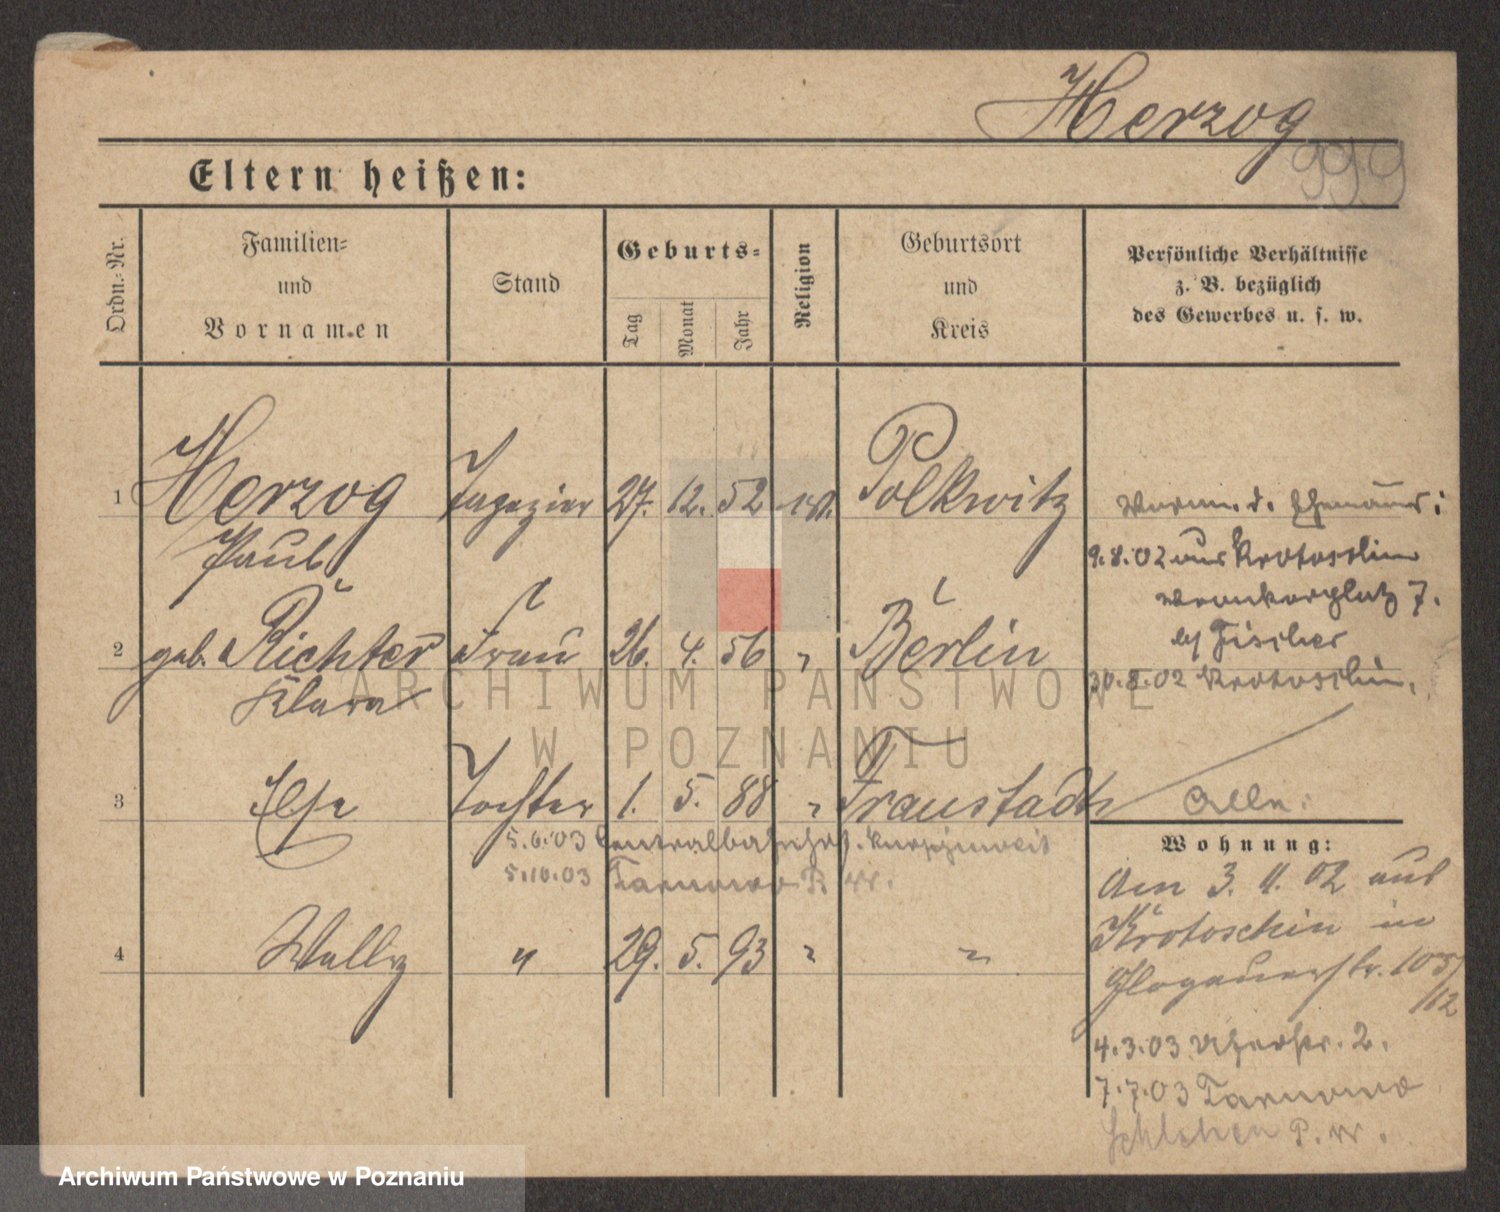 Herzog
999
Eltern heißen:
Ordn.-Nr.
Familien-
und
Vornamen
Stand
Geburts-
Tag
Monat
Jahr
Religion
Geburtsort
und
Kreis
Persönliche Verhältnisse
z. B. bezüglich
des Gewerbes u. s. w.
1 Herzog Tapezier 27. 12. 52 Polkwitz
Paul
d. Ehemanns:
9.8.02 aus Krotoschin
7.
by Fischer
30.8.02 Krotoschin.
2 geb. Richter Frau 26. 4. 56 " Berlin
Klara
3 Else Tochter 1. 5. 88 " Fraustadt
Alle:
5.6.03 Centralbahnhof.
5.10.03 Tarnowo P. W.
4 Wally " 29. 5. 93 " "
Wohnung:
Am 3. 11. 02 aus
Krotoschin in
Glogauerstr. 105/
112
4.3.03 Uferstr. 2.
7.7.03 Tarnowo
Schlehen P. W.
ARCHIWUM PAŃSTWOWE
W POZNANIU
Archiwum Państwowe w Poznaniu